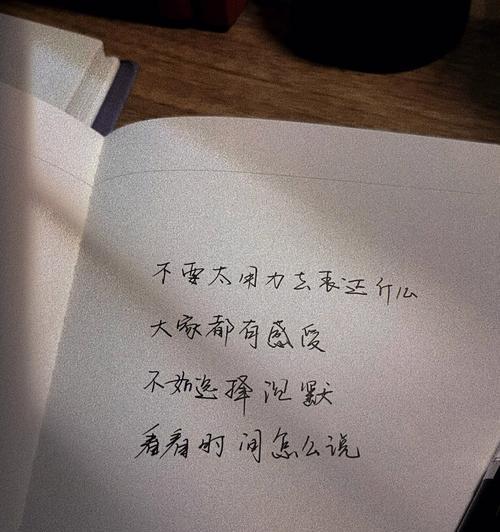 不要太用力去表达什么
大家都有感受
不如选择沉默
看看时间怎么说